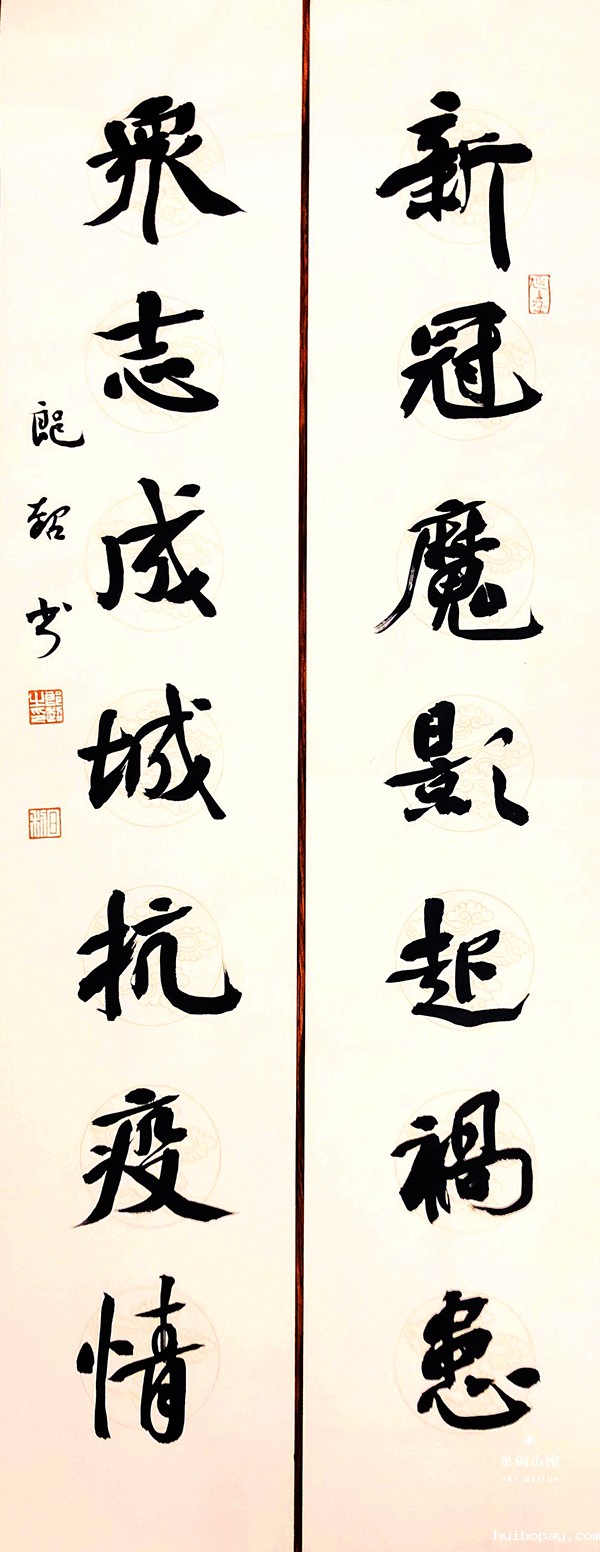 新冠魔影起禍患
眾志成城抗疫情
郎超书
huibopay.com